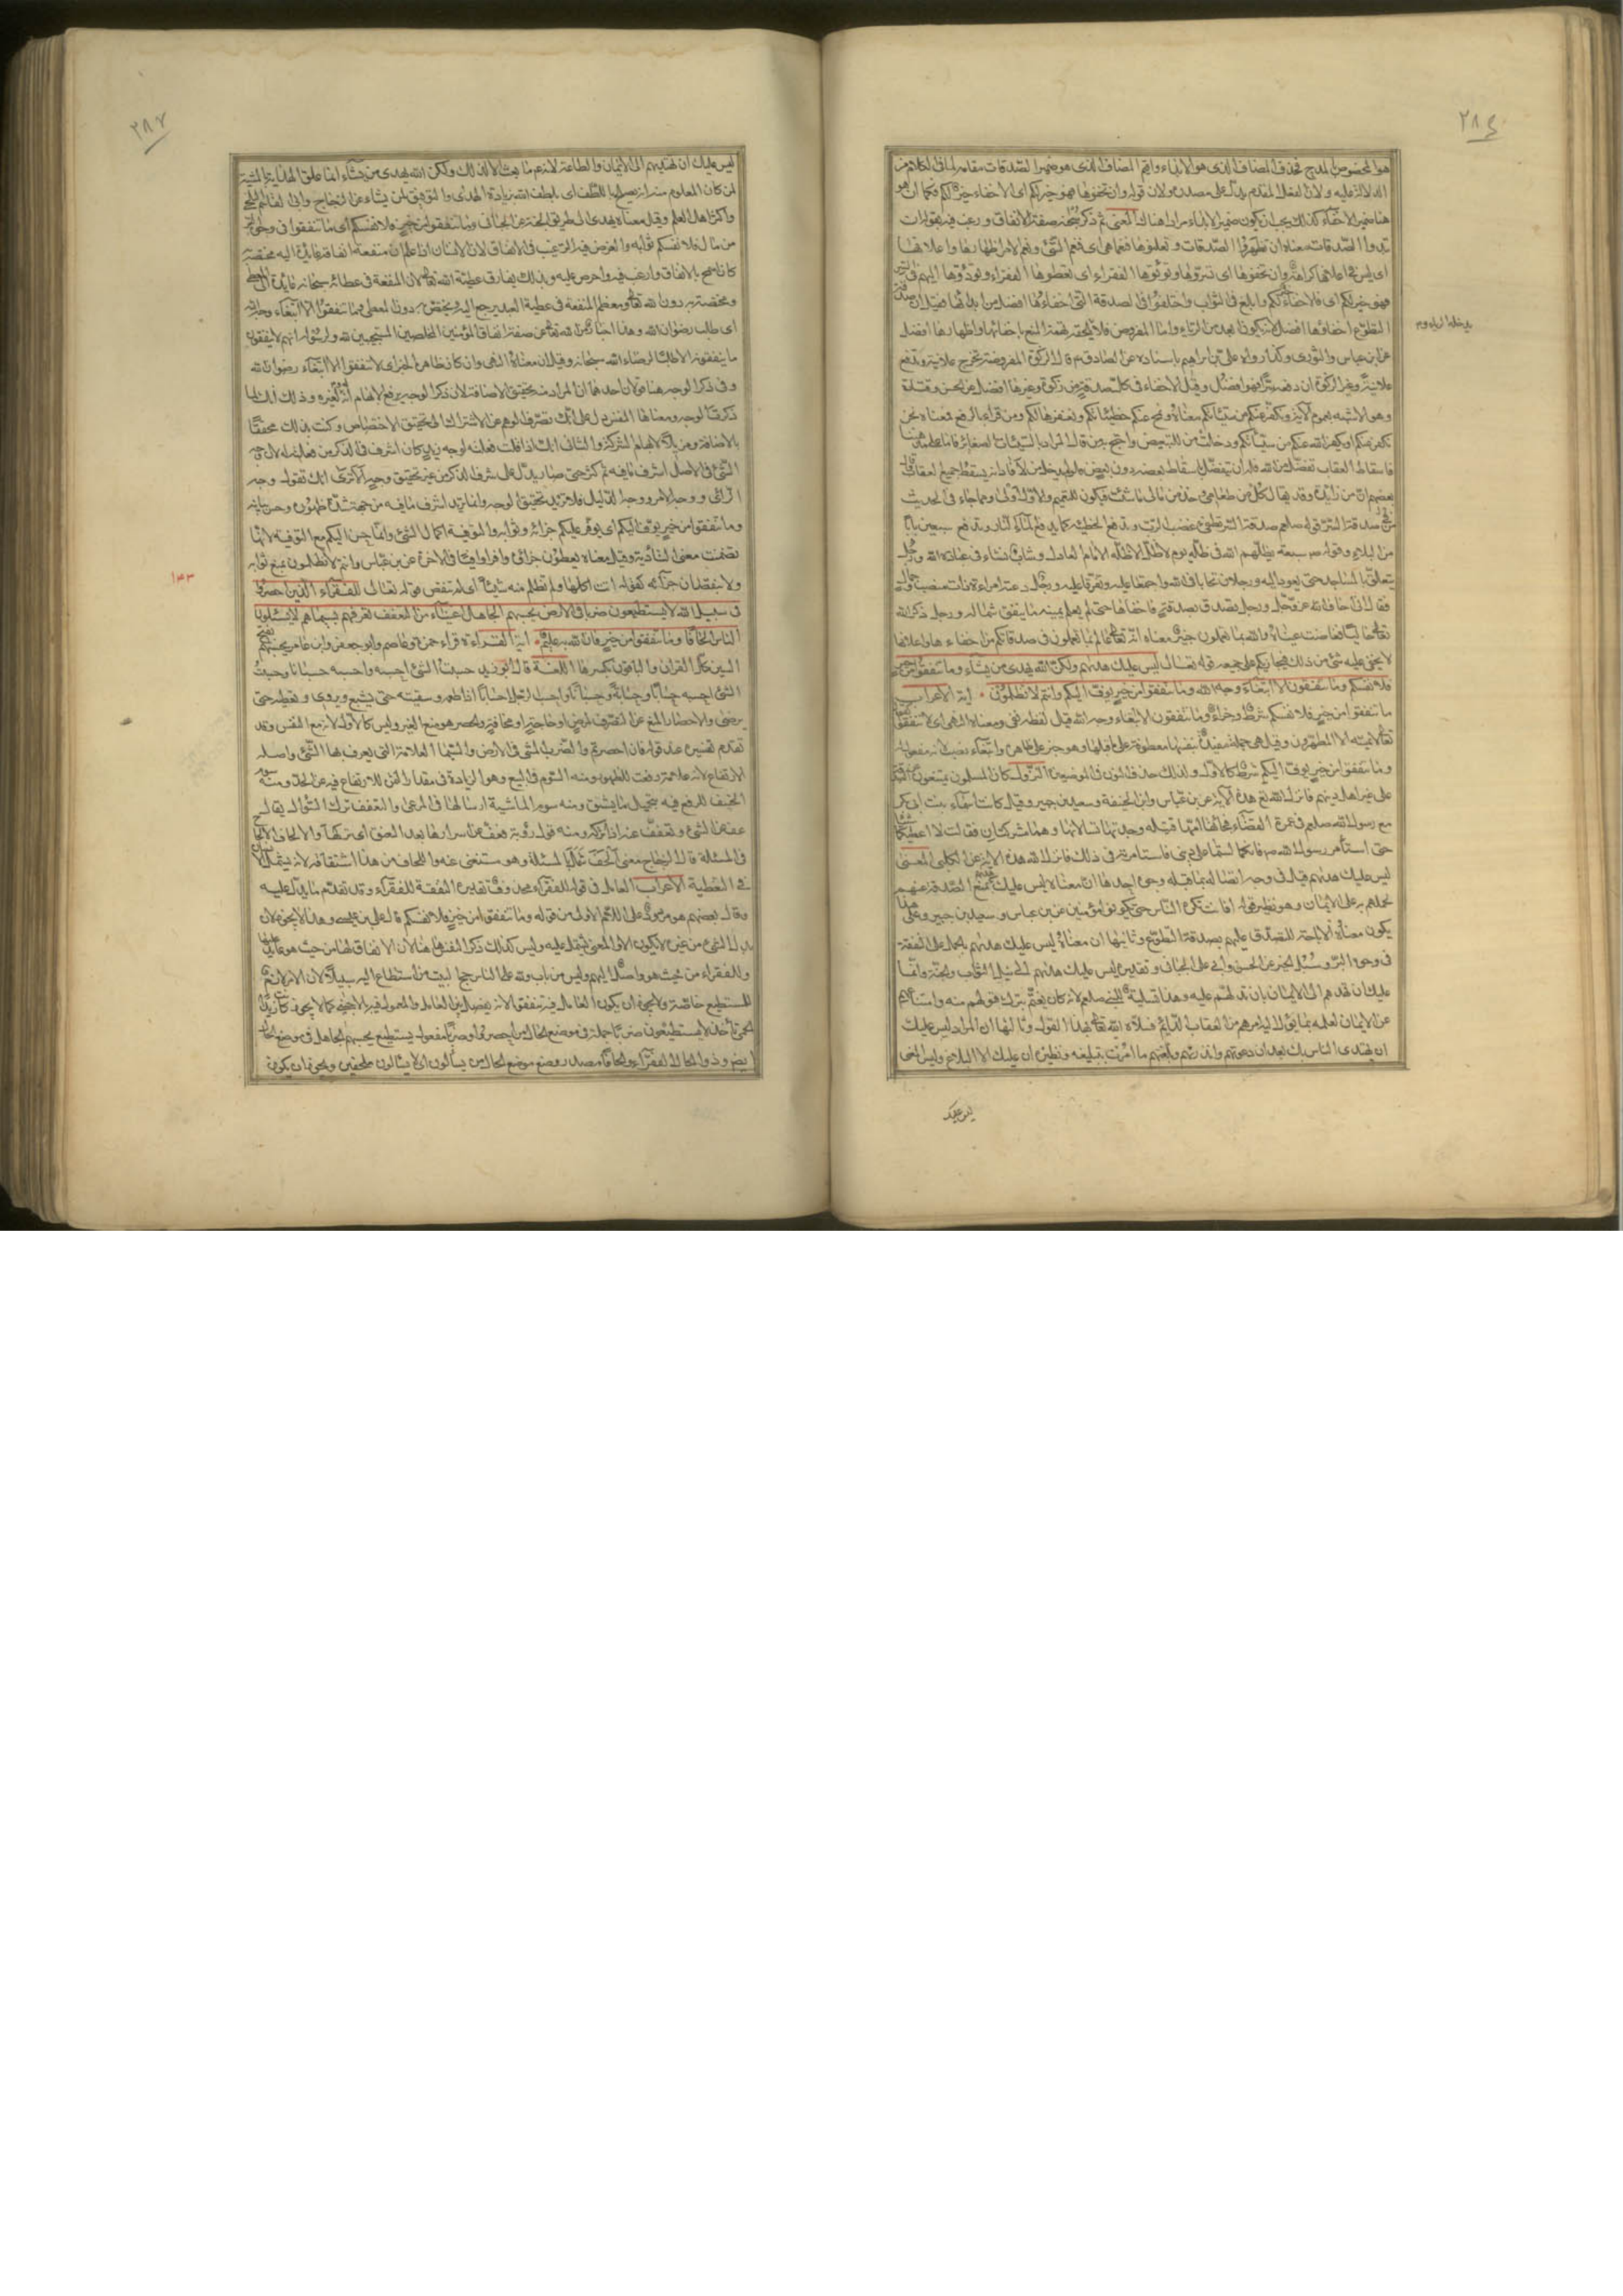 ٢٨٤
هو المخصوص بالمدح فحذف المضاف الذى هو الابداء واقيم المضاف اليه الذى هو ضمير الصدقات مقامه لما فى الكلام من
الدلالة عليه ولان الفعل المقدم يدل على مصدره ولان قوله وان تخفوها فهو خير لكم اى الاخفاء خير لكم فكما ان هو
هنا ضمير الاخفاء كذلك يجب ان يكون ضمير الابداء مرادا هناك المعنى ثم ذكر سبحانه صفة الانفاق ورغب فيه بقوله ان
تبدوا الصدقات معناه ان تظهروا الصدقات وتعلنوها فنعما هى اى فنعم الشىء ونعم الامر اظهارها واعلانها
اى ليس فى اعلانها كراهة وان تخفوها اى تسروها وتؤتوها الفقراء اى تعطوها الفقراء وتؤدوها اليهم فى السر
فهو خير لكم اى فالاخفاء خير لكم وابلغ فى الثواب واختلفوا فى الصدقة التى اخفاؤها افضل من ابدائها فقيل ان صدقة
التطوع اخفاؤها افضل لانه يكون ابعد من الرياء واما المفروض فلا يدخله الرياء ويلحقه تهمة المنع باخفائها فاظهارها افضل
عن ابن عباس والثورى وكذا رواه على بن ابراهيم باسناده عن الصادق م قال الزكوة المفروضة تخرج علانية وتدفع
علانية وغير الزكوة ان دفعه سرا فهو افضل وقيل الاخفاء فى كل صدقة من زكوة وغيرها افضل عن الحسن وقتادة
وهو الاشبه بعموم الآية ويكفر عنكم من سيئاتكم معناه ونمح عنكم خطيئاتكم ونغفرها لكم ومن قرأ بالرفع فمعناه ونحن
نكفر عنكم او يكفر الله عنكم من سيئاتكم ودخلت من للتبعيض
فاسقاط العقاب تفضل من الله فله ان يتفضل باسقاط بعضه دون بعض
بعضهم ان من زائدة وقد يقال كل من طعامى وخذ من مالى ما شئت فيكون للتعميم والاول اولى ومما جاء فى الحديث
فى صدقة السر قوله صلعم صدقة السر تطفئ غضب الرب وتدفع الخطيئة كما يطفئ الماء النار وتدفع سبعين بابا
من البلاء وقوله ص سبعة يظلهم الله فى ظله يوم لا ظل الا ظله الامام العادل وشاب نشاء فى عبادة الله ورجل
يتعلق بالمساجد حتى يعود اليه ورجلان تحابا فى الله واجتمعا عليه وتفرقا عليه ورجل دعته امراءة ذات منصب وجمال
فقال انى اخاف الله عز وجل ورجل تصدق بصدقة فاخفاها حتى لم يعلم يمينه ما ينفق شماله ورجل ذكر الله
خاليا ففاضت عيناه والله بما تعملون خبير معناه انه تعالى عالم بما تعملون فى صدقاتكم من اخفاءها واعلانها
لا يخفى عليه شئ من ذلك فيجازيكم على جميعه قوله تعالى ليس عليك هديهم ولكن الله يهدى من يشاء وما تنفقوا من خير
فلانفسكم وما تنفقون الا ابتغاء وجه الله وما تنفقوا من خير يوف اليكم وانتم لا تظلمون آية الاعراب
ما تنفقوا من خير فلانفسكم شرط وجزاء وما تنفقون الا ابتغاء وجه الله قيل لفظه نفى ومعناه النهى اى لا تنفقوا
الا المطهرون وقيل هى جملة مفيدة بنفسها معطوفة على ما قبلها وهو خبر على ظاهره وابتغاء نصب لانه مفعول له
وما تنفقوا من خير يوف اليكم شرط كالاول ولذلك حذف النون فى الموضعين النزول كان المسلمون يمتنعون عن الصدقة
على غير اهل دينهم فانزل الله تع هذه الآية عن ابن عباس وابن الحنفية وسعيد بن جبير وقيل كانت اسماء بنت ابى بكر
مع رسول الله صلعم فى عمرة القضاء فجائتها امها قتيلة وجدتها تسالانها وهما مشركتان فقالت لا اعطيكما شيئا
حتى استأمر رسول الله ص فانكما لستما على دينى فاستامرته فى ذلك فانزل الله هذه الآية عن الكلبى المعنى
ليس عليك هديهم قيل فى وجه اتصاله بما قبله وجوه احدها ان معناه ليس عليك هديهم بمنع الصدقة عنهم
لتحملهم به على الايمان وهو نظير قوله افانت تكره الناس حتى يكونوا مؤمنين عن ابن عباس وسعيد بن جبير وعلى هذا
يكون معناه الاباحة للتصدق عليهم بصدقة التطوع وثانيها ان معناه ليس عليك هديهم بالحمل على النفقة
فى وجوه البر وسبل الخير عن الحسن وابى على الجبائى وتقديره ليس عليك هديهم الى نيل الثواب والجنة وانما
عليك ان تهديهم الى الايمان بان تدلهم عليه وهذا تسلية للنبى صلعم لانه كان يغتم بترك قبولهم منه وامتناعهم
عن الايمان لعلمه بما يؤل اليه امرهم من العقاب الدائم فسلاه الله تعالى بهذا القول وثالثها ان المراد ليس عليك
ان يهتدى الناس بك بعد ان دعوتهم وانذرتهم وبلغتهم ما امرت بتبليغه ونظيره ان عليك الا البلاغ وليس المعنى
ليس عليك
٢٨٧
ليس عليك ان تهديهم الى الايمان والطاعة لانه ع ما بعث الا لذلك ولكن الله يهدى من يشاء انما علق الهداية بالمشية
لمن كان المعلوم منه انه يصلح باللطف اى بلطف الله بزيادة الهدى والتوفيق لمن يشاء عن الزجاج وابى القاسم البلخى
واكثر اهل العلم وقيل معناه يهدى الى طريق الجنة عن الجبائى وما تنفقوا من خير فلانفسكم اى ما تنفقوا فى وجوه البر
من مال فلانفسكم ثوابه والغرض فيه الترغيب فى الانفاق لان الانسان اذا علم ان منفعة انفاقه عايدة اليه مختصة به
كان اسمح بالانفاق وارغب فيه واحرص عليه وبذلك يفارق عطية الله تعالى لان المنفعة فى عطائه سبحانه عايدة الى المعطى
ومختصة به دون الله تعالى ومعظم المنفعة فى عطية العبد يرجع اليه ويختص به دون المعطى وما تنفقوا الا ابتغاء وجه الله
اى طلب رضوان الله وهذا اخبار من الله تعالى عن صفة انفاق المؤمنين المخلصين المستجيبين لله ولرسوله انهم لا ينفقون
ما ينفقونه الا طلبا لرضاء الله سبحانه وقيل ان معناه النهى وان كان ظاهره الخبر اى لا تنفقوا الا ابتغاء رضوان الله
وفى ذكر الوجه هنا قولان احدهما ان المراد منه تحقيق الاضافة لان ذكر الوجه يرفع الابهام انه له ولغيره وذلك انك لما
ذكرت الوجه ومعناه النفس دل على انك تصرف الوهم عن الاشتراك الى تحقيق الاختصاص وكنت بذلك محققا
للاضافة ومزيلا لايهام الشركة والثانى انك اذا قلت فعلته لوجه زيد كان اشرف فى الذكر من فعلته له لان وجه
الشئ فى الاصل اشرف ما فيه ثم كثر حتى صار يدل على شرف الذكر من غير تحقيق وجه الا ترى انك تقول وجه
الراى ووجه الامر ووجه الدليل فلا تريد تحقيق الوجه وانما تريد اشرف ما فيه من جهة شدة ظهوره وحسن بيانه
وما تنفقوا من خير يوف اليكم اى يوفر عليكم جزاؤه وثوابه والتوفية اكمال الشئ وانما حسن اليكم مع التوفية لانها
تضمنت معنى التادية وقيل معناه يعطون جزاؤه وافرا وافيا فى الآخرة عن ابن عباس وانتم لا تظلمون بمنع ثوابه
ولا بنقصان جزائه كقوله آتت اكلها ولم تظلم منه شيئا اى لم تنقص قوله تعالى للفقراء الذين احصروا
١٤٣
فى سبيل الله لا يستطيعون ضربا فى الارض يحسبهم الجاهل اغنياء من التعفف تعرفهم بسيماهم لا يسئلون
الناس الحافا وما تنفقوا من خير فان الله به عليم آية القراءة قراء حمزة وعاصم وابو جعفر وابن عامر يحسبهم بفتح
السين كل القرآن والباقون بكسرها اللغة قال ابو زيد حسبت الشئ احسبه واحسبه حسبانا وحسبت
الشئ احسبه حسابا وحسابة وحسبانا واحسبت الرجل احسابا اذا اطعمه وسقيته حتى يشبع ويروى وتعطيه حتى
يرضى والاحصار المنع عن التصرف لمرض او حاجة او مخافة والحصر هو منع الغير وليس كالاول لانه منع النفس وقد
تقدم تفسيره عند قوله فان احصرتم والضرب المشى فى الارض والسيما العلامة التى يعرف بها الشئ واصله
الارتفاع لانه علامة رفعت للظهور ومنه السوم فى البيع وهو الزيادة فى مقدار الثمن للارتفاع فيه عن الحد ومنه سوم
الخسف للرفع فيه بتحميل ما يشق ومنه سوم الماشية ارسالها فى المرعى والتعفف ترك السؤال يقال
عف عن الشئ وتعفف عنه اذا تركه ومنه قول رؤبة فعف عن اسرارها بعد العسق اى تركها والالحاف الالحاح
فى المسئلة قال الزجاج معنى الحف شمل بالمسئلة وهو مستغن عنها واللحاف من هذا اشتقاقه لانه يشمل الانسان
فى التغطية الاعراب العامل فى قوله للفقراء محذوف وتقديره النفقة للفقراء وقد تقدم ما يدل عليه
وقال بعضهم هو مردود على اللام الاولى من قوله وما تنفقوا من خير فلانفسكم قال على بن عيسى وهذا لا يجوز لان
بدل الشئ من غيره لا يكون الا والمعنى يشتمل عليه وليس كذلك ذكر النفس هاهنا لان الانفاق لها من حيث هو عائد عليها
وللفقراء من حيث هو واصل اليهم وليس من باب ولله على الناس حج البيت من استطاع اليه سبيلا لان الامر لازم
للمستطيع خاصة ولا يجوز ان يكون العامل فيه تنفقوا لانه يفصل بين العامل والمعمول فيه بالاجنبى كما لا يجوز كانت زيدا
الحمى تأخذ لا يستطيعون ضربا جملة فى موضع الحال من احصروا وضربا مفعول يستطيع يحسبهم الجاهل فى موضع الحال
ايضا وذو الحال الفقراء والحافا مصدر وضع موضع الحال من يسألون اى لا يسألون ملحفين ويجوز ان يكون